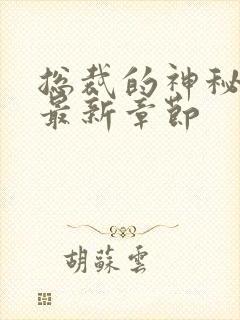 总裁的神秘
最新章節
胡蘇雲